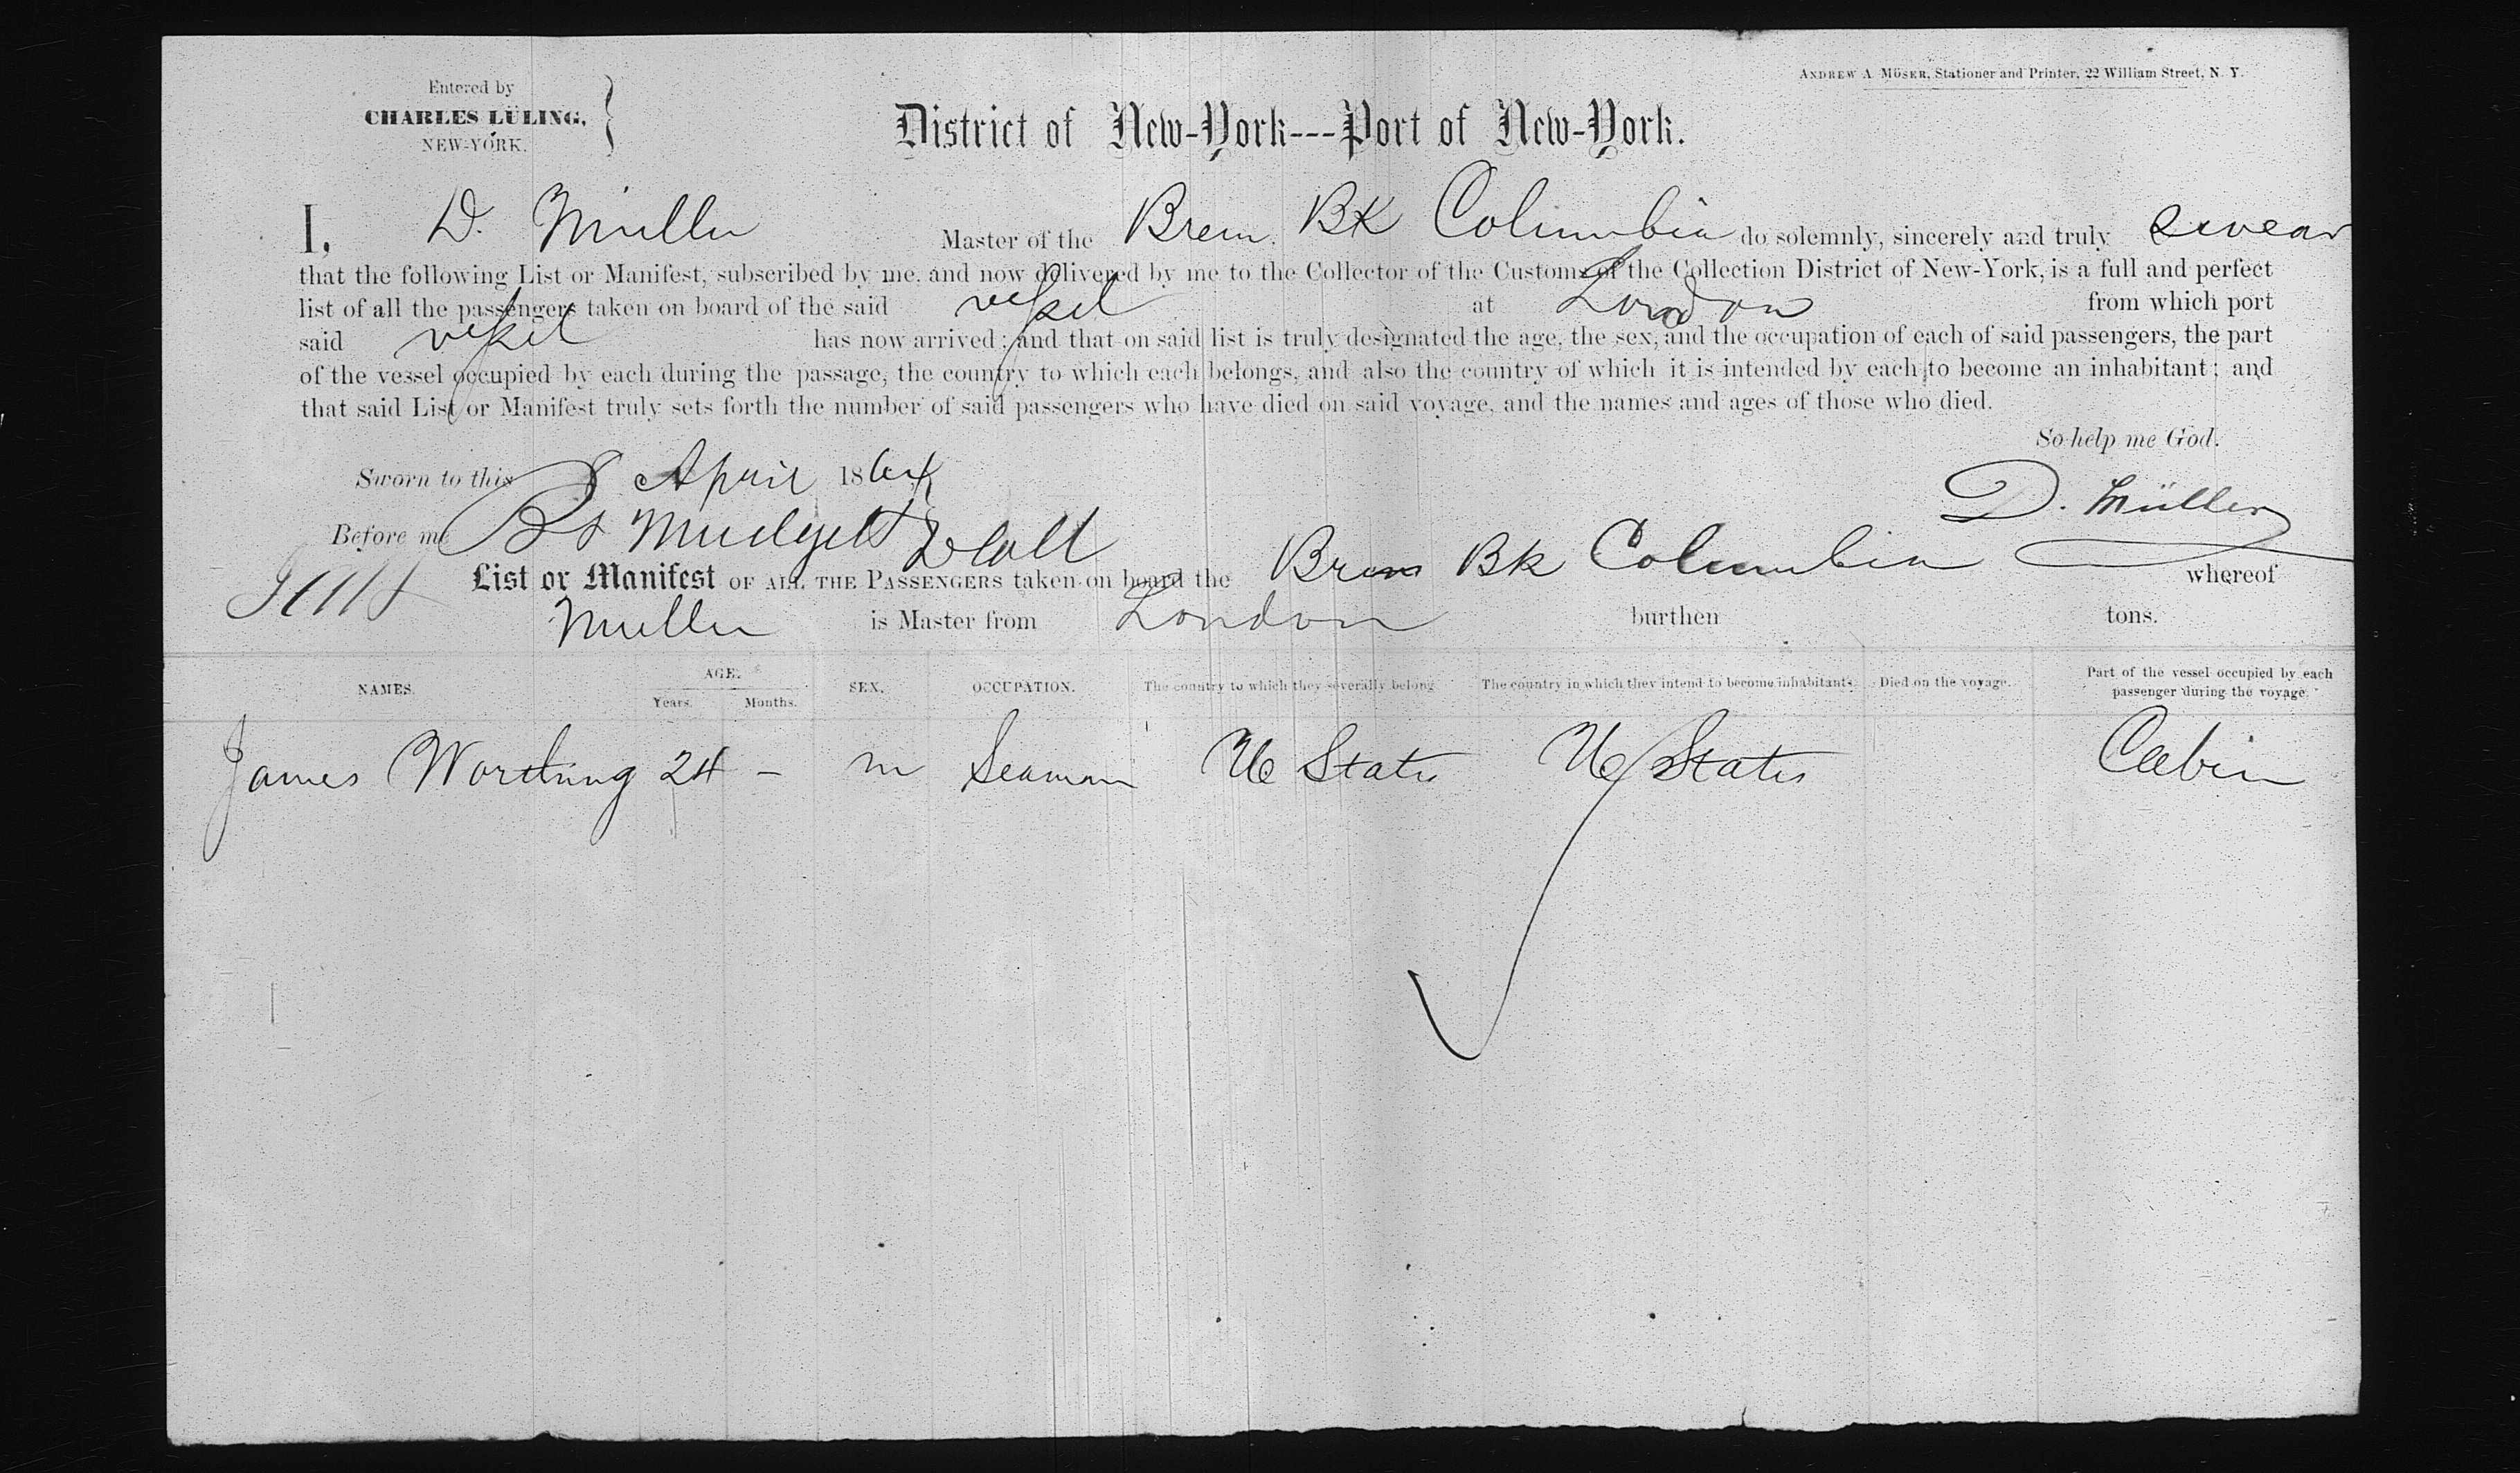 Entered by
CHARLES LÜLING,
NEW-YORK.
ANDREW A. MÖSER, Stationer and Printer, 22 William Street, N. Y.
District of New-York---Port of New-York.
I, D. Muller Master of the Brem. Bk Columbia do solemnly, sincerely and truly swear
that the following List or Manifest, subscribed by me, and now delivered by me to the Collector of the Customs of the Collection District of New-York, is a full and perfect
list of all the passengers taken on board of the said vessel at London from which port
said vessel has now arrived; and that on said list is truly designated the age, the sex, and the occupation of each of said passengers, the part
of the vessel occupied by each during the passage, the country to which each belongs, and also the country of which it is intended by each to become an inhabitant; and
that said List or Manifest truly sets forth the number of said passengers who have died on said voyage, and the names and ages of those who died.
So help me God.
Sworn to this 8 April 1864
D. Müller
Before me Mudgett
List or Manifest OF ALL THE PASSENGERS taken on board the Brem Bk Columbia whereof
Muller is Master from London burthen tons.
NAMES. AGE. Years. Months. SEX. OCCUPATION. The country to which they severally belong. The country in which they intend to become inhabitants. Died on the voyage. Part of the vessel occupied by each passenger during the voyage.
James Worthing 24 - m Seaman U States U States Cabin